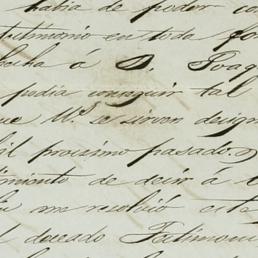 habia de poder con
timonio en toda for
fecha á D. Joaq
podia conseguir tal
ue Mᵈ se sirven design
il procsimo pasado.
imiento de decir á
me resolvió esta
l deseado Testimoni